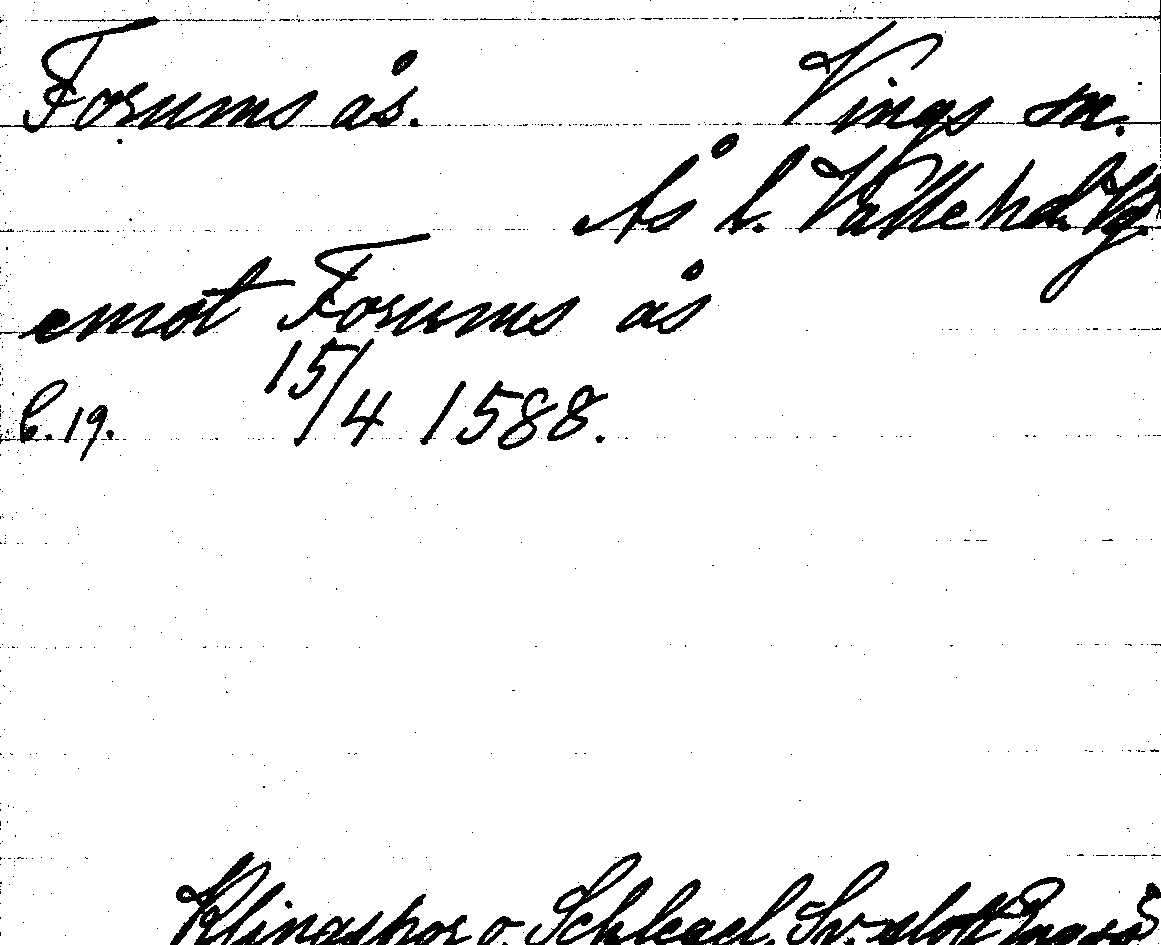 Forums ås. Vings sn.
Ås h. Valle hd. Vg.
emot Forums ås
15/4 1588.
b. 19.
Klingspor o. Schlegel, Sv. slott Engsö